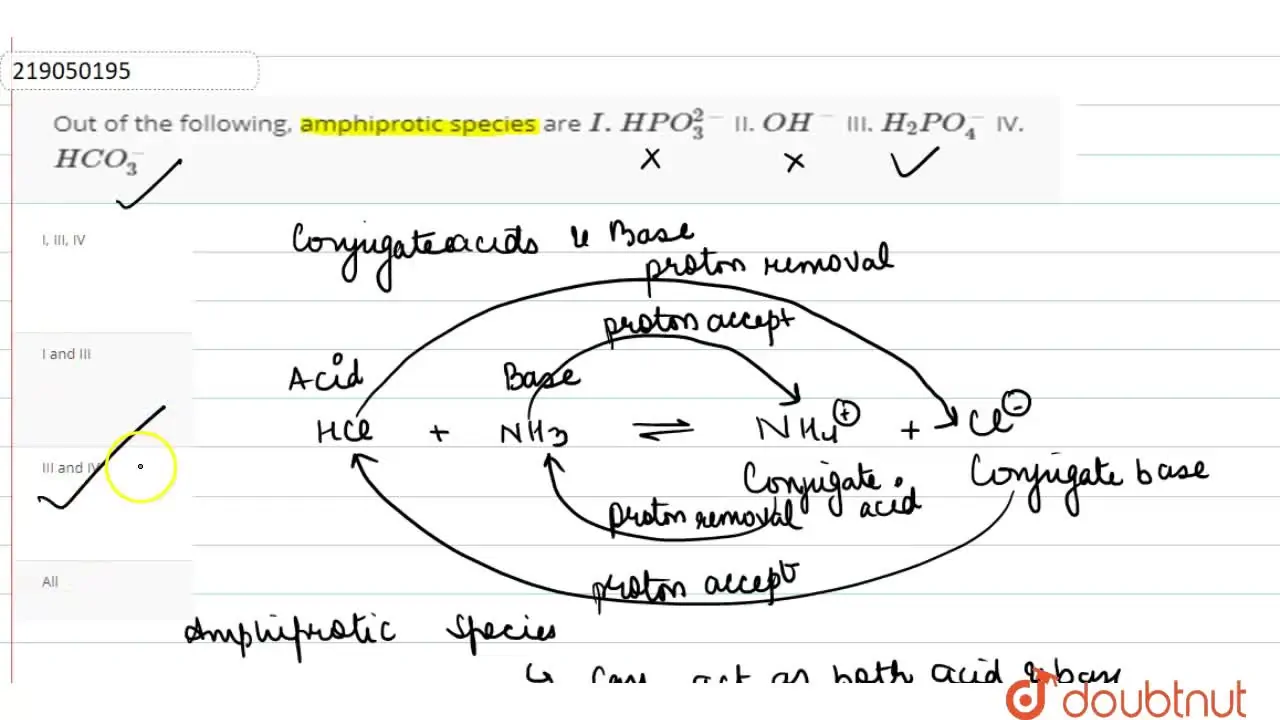 219050195
Out of the following, amphiprotic species are I. HPO₃²⁻ II. OH⁻ III. H₂PO₄⁻ IV.
HCO₃⁻
I, III, IV
Conjugate acids & Base
proton removal
proton accept
I and III
Acid
Base
HCl + NH3 ⇌ NH4⊕ + Cl⊖
III and IV
Conjugate acid
Conjugate base
proton removal
All
proton accept
Amphiprotic Species
↳ Can act as both acid & base
doubtnut